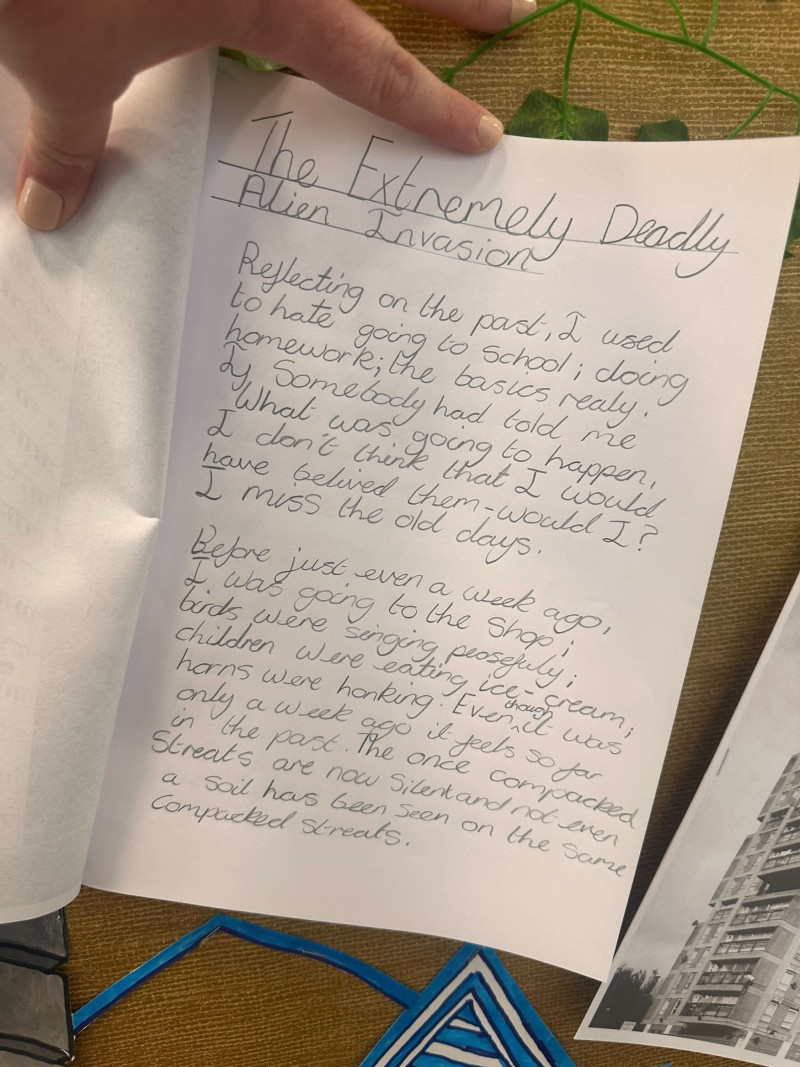 The Extremely Deadly
Alien Invasion
Reflecting on the past, I used
to hate going to school; doing
homework; the basics realy.
If somebody had told me
What was going to happen,
I don't think that I would
have belived them-would I?
I miss the old days.
Before just even a week ago,
I was going to the shop;
birds were singing peasefuly;
children were eating ice-cream;
horns were honking. Even though it was
only a week ago it feels so far
in the past. The once compacked
Streats are now silent and not even
a soil has been seen on the same
compacked streats.